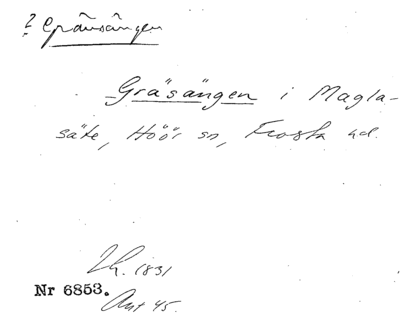 ? Gräsängen
Gräsängen i Magla-
säte, Höör sn, Frosta hd.
1831
Nr 6853.
Ant 45.